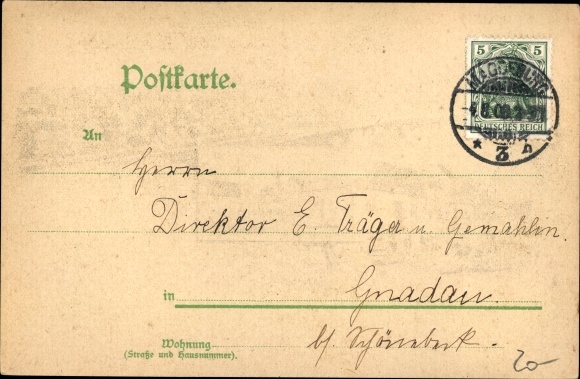 5 5
MAGDEBURG
DEUTSCHES REICH
* 3 h
Postkarte.
An
Herrn
Direktor E. Träger u. Gemahlin.
in Gnadau.
Wohnung b/ Schönebeck.
(Straße und Hausnummer).
20-